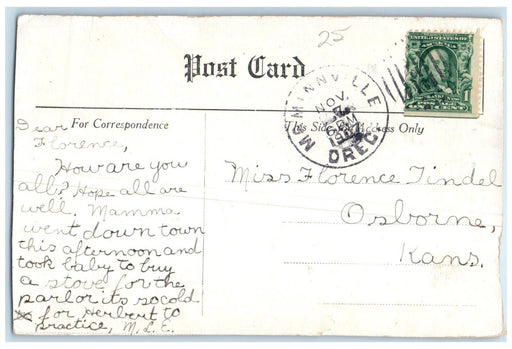 25
Post Card
UNITED STATES OF
AMERICA
McMINNVILLE
NOV.
OREG
For Correspondence
This Side for Address Only
Dear
Florence,
How are you
all? Hope all are
well. Mamma
went down town
this afternoon and
took baby to buy
a stove for the
parlor its so cold
for Herbert to
practice, M.L.E.
Miss Florence Tindel
Osborne,
Kans.